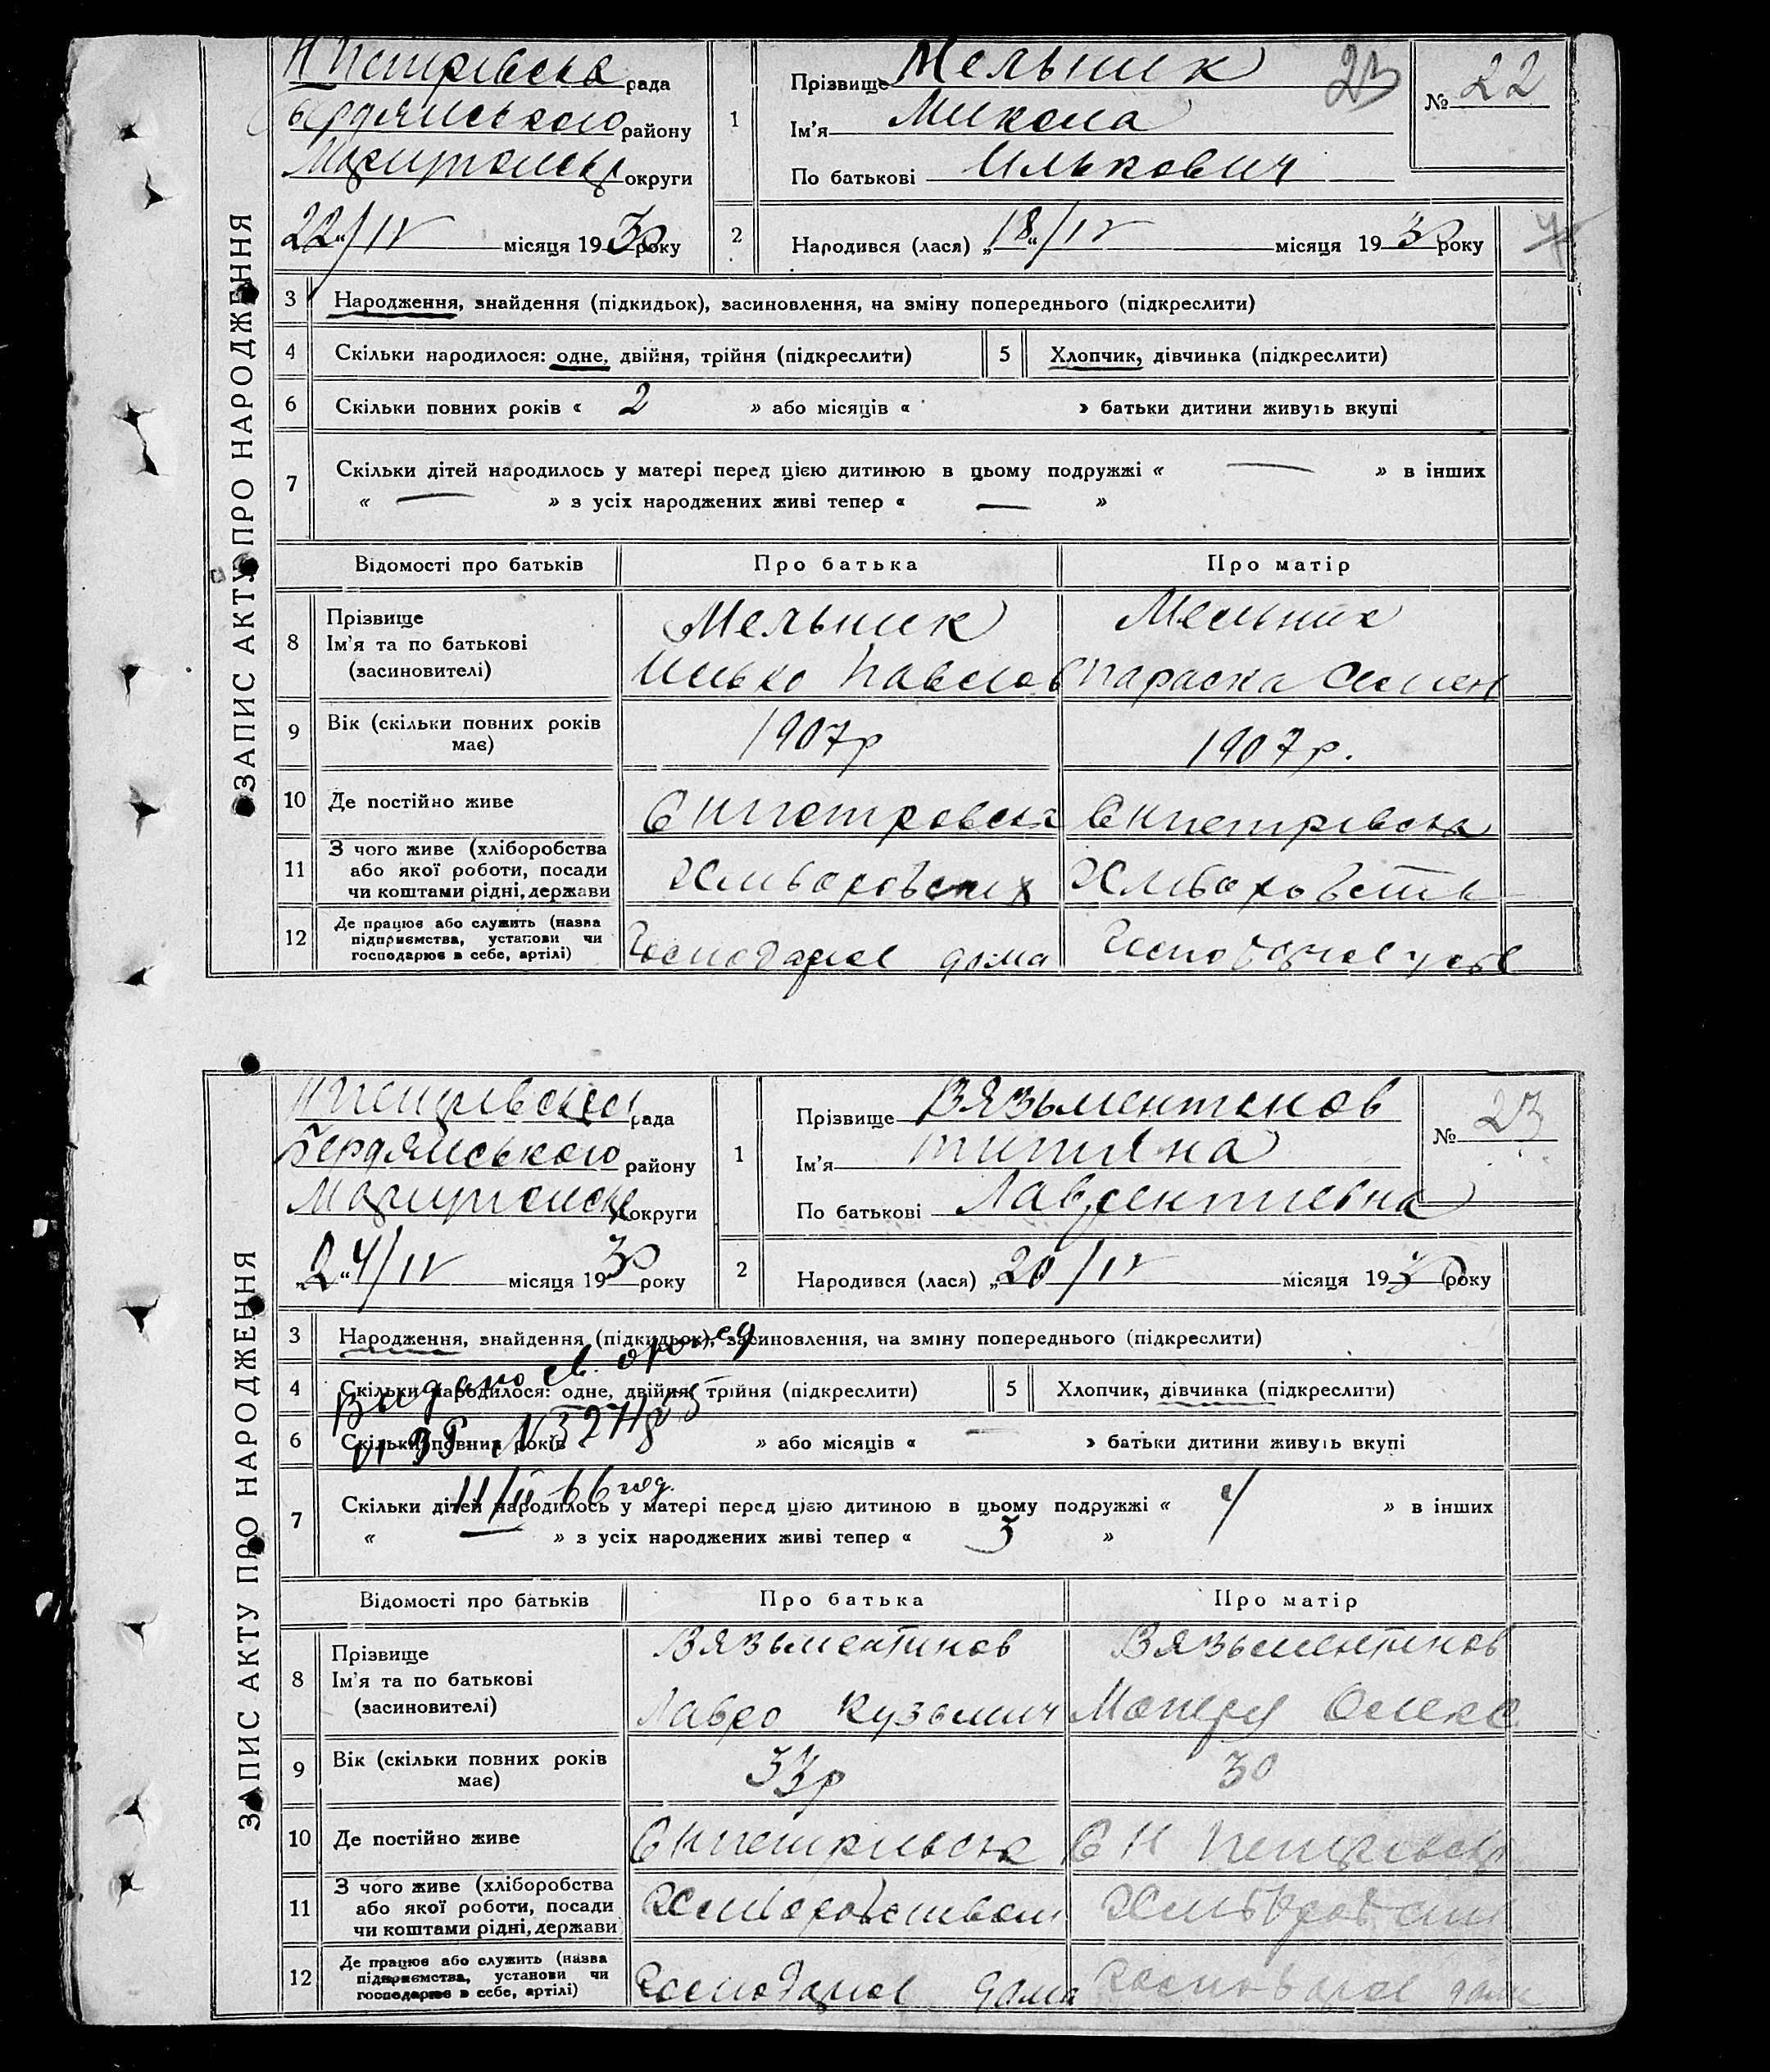 ЗАПИС АКТУ ПРО НАРОДЖЕННЯ
Н Петрівська рада
Бердянського району
округи
22/IV місяця 1930 року
1
Прізвище Мельник
Ім'я Микола
По батькові Илькович
23
№ 22
2
Народився (лася) „18“/IV місяця 1930 року
4
3 Народження, знайдення (підкидьок), засиновлення, на зміну попереднього (підкреслити)
4 Скільки народилося: одне, двійня, трійня (підкреслити) 5 Хлопчик, дівчинка (підкреслити)
6 Скільки повних років « 2 » або місяців « » батьки дитини живуть вкупі
7 Скільки дітей народилось у матері перед цією дитиною в цьому подружжі « — » в інших
« — » з усіх народжених живі тепер « — »
Відомості про батьків Про батька Про матір
8 Прізвище
Ім'я та по батькові
(засиновителі)
Мельник
Илько Павлов
Мельник
Параска Семен
9 Вік (скільки повних років
має)
1907р
1907р.
10 Де постійно живе С Н петровка С Н петрівка
11 З чого живе (хліборобства
або якої роботи, посади
чи коштами рідні, держави
12 Де працює або служить (назва
підприємства, установи чи
господарює в себе, артілі)
Господарює дома
Господарює у себе
ЗАПИС АКТУ ПРО НАРОДЖЕННЯ
Н Петрівська рада
Бердянського району
округи
„24/IV місяця 1930 року
1
Прізвище Вязьментинов
Ім'я Титяна
По батькові Лаврентиевна
№ 23
2
Народився (лася) „20/IV місяця 1930 року
3 Народження, знайдення (підкидьок), засиновлення, на зміну попереднього (підкреслити)
4 Скільки народилося: одне, двійня, трійня (підкреслити) 5 Хлопчик, дівчинка (підкреслити)
Выдано св. о рожд
6 Скільки повних років » або місяців « — » батьки дитини живуть вкупі
11/II 66 год.
7 Скільки дітей народилось у матері перед цією дитиною в цьому подружжі « 4 » в інших
« — » з усіх народжених живі тепер « 3 »
Відомості про батьків Про батька Про матір
8 Прізвище
Ім'я та по батькові
(засиновителі)
Вязьментинов
Лавро Кузьмич
Вязьментинов
Олекс
9 Вік (скільки повних років
має)
33р
30
10 Де постійно живе С Н петрівка С Н Петрівка
11 З чого живе (хліборобства
або якої роботи, посади
чи коштами рідні, держави
Хліборобством
12 Де працює або служить (назва
підприємства, установи чи
господарює в себе, артілі)
Господарює дома
Господарює дома